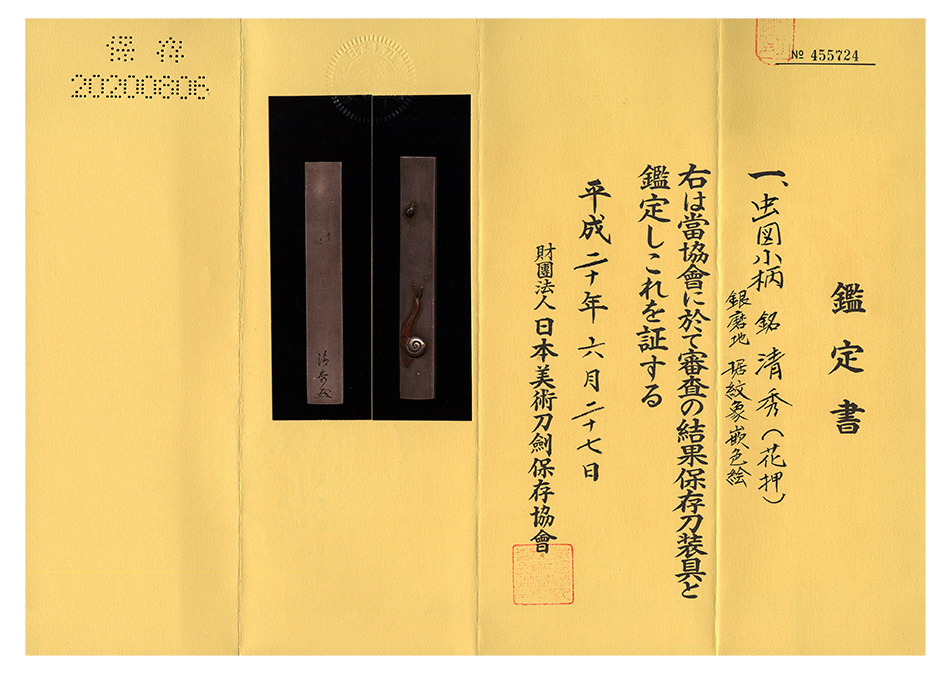 No 455724
鑑定書
一、虫図小柄 銘 清秀(花押)
銀磨地 据紋象嵌色絵
右は當協會に於て審査の結果保存刀装具と
鑑定しこれを証する
平成二十年六月二十七日
財團法人 日本美術刀劍保存協會
清秀
保存
20200806